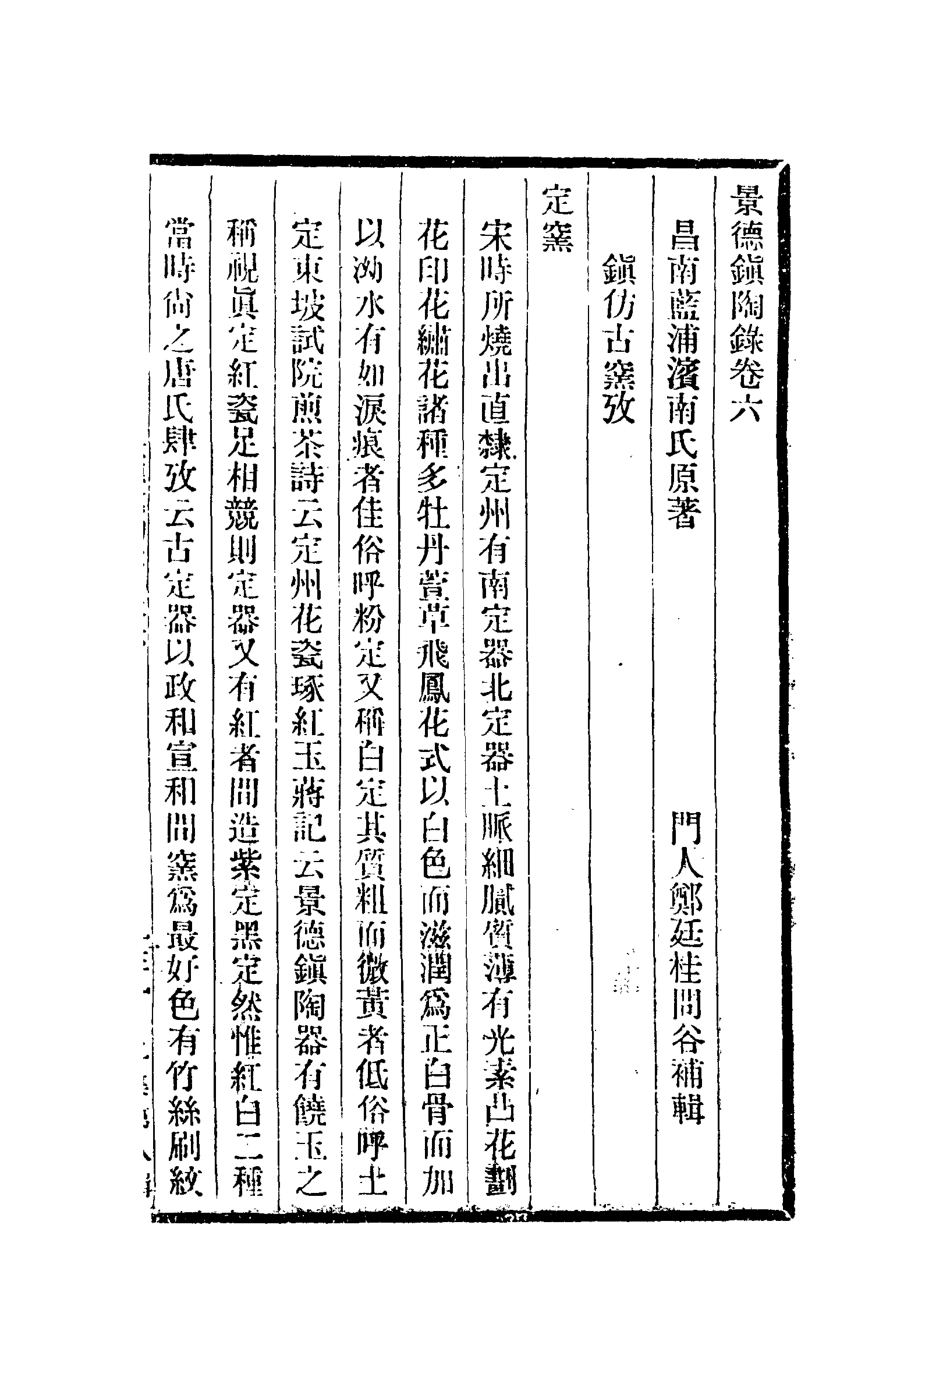 景德鎭陶錄卷六
昌南藍浦濱南氏原著　門人鄭廷桂問谷補輯
鎭仿古窯攷
定窯
宋時所燒出直隸定州有南定器北定器土脈細膩質薄有光素凸花劃
花印花繡花諸種多牡丹萱草飛鳳花式以白色而滋潤爲正白骨而加
以泑水有如淚痕者佳俗呼粉定又稱白定其質粗而微黃者低俗呼土
定東坡試院煎茶詩云定州花瓷琢紅玉蔣記云景德鎭陶器有饒玉之
稱視眞定紅瓷足相競則定器又有紅者間造紫定黑定然惟紅白二種
當時尙之唐氏肆攷云古定器以政和宣和間窯爲最好色有竹絲刷紋